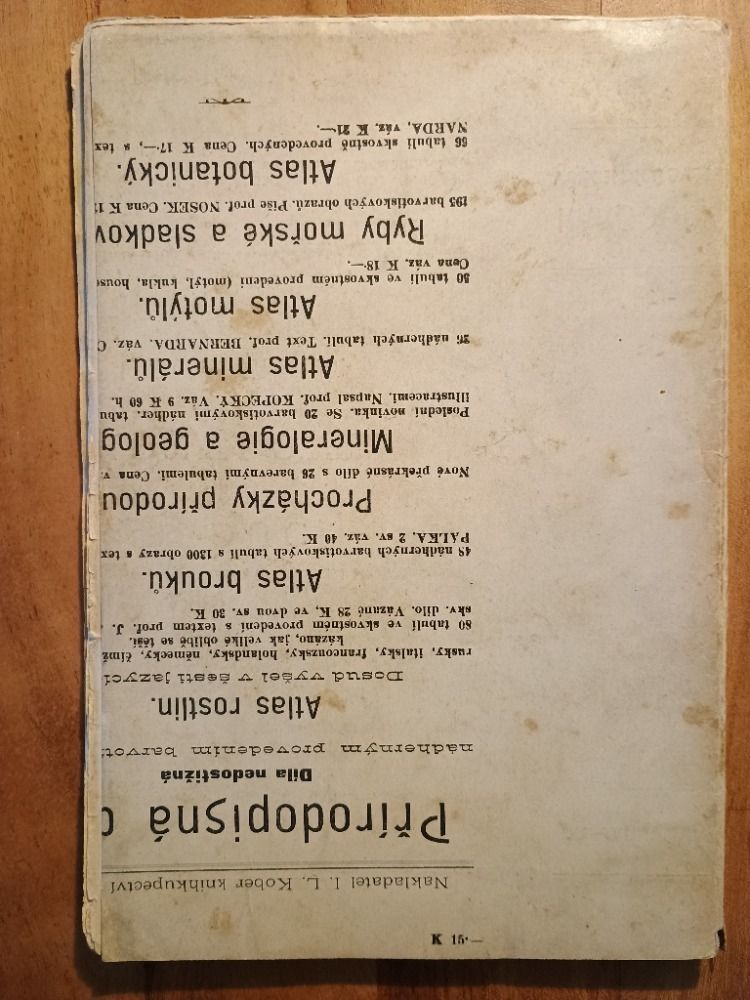 Nakladatel I. L. Kober knihkupectví
Přírodopisná
Díla nedostižná
nádherným provedením
Atlas rostlin.
Dosud vyšel v šesti
rusky, italsky, francouzsky, holandsky, německy, čímž
kázáno, jak veliké oblibě se těší.
80 tabulí ve skvostném provedení s textem prof. J.
skv. dílo. Vázané 28 K, ve dvou sv. 30 K.
Atlas brouků.
48 nádherných barvotiskových tabulí s 1300 obrazy s
PALKA, 2 sv. váz. 40 K.
Procházky přírodou
Nové překrásné dílo s 26 barevnými tabulemi. Cena
Mineralogie a geolog
Poslední novinka. Se 20 barvotiskovými nádher. tabu
illustracemi. Napsal prof. KOPECKÝ. Váz. 9 K 60 h.
Atlas minerálů.
26 nádherných tabulí. Text prof. BERNARDA. váz. C
Atlas motýlů.
50 tabulí ve skvostném provedení (motýl, kukla, house
Cena váz. K 18·—.
Ryby mořské a sladkov
195 barvotiskových obrazů. Píše prof. NOSEK. Cena K
Atlas botanický.
66 tabulí skvostně provedených. Cena K 17·—, s tex
NARDA, váz. K 21·—.
K 15·—